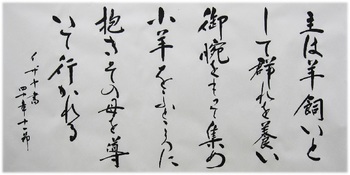 主は羊飼いと
して群れを養い
御腕をもって集め
小羊をふところに
抱きその母を導
いて行かれる
イザヤ書
四十章十一節